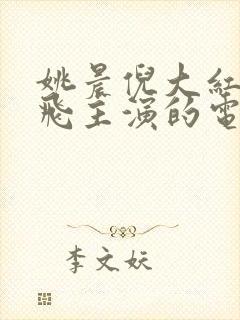 姚晨倪大红
飞主演的电
李文妖